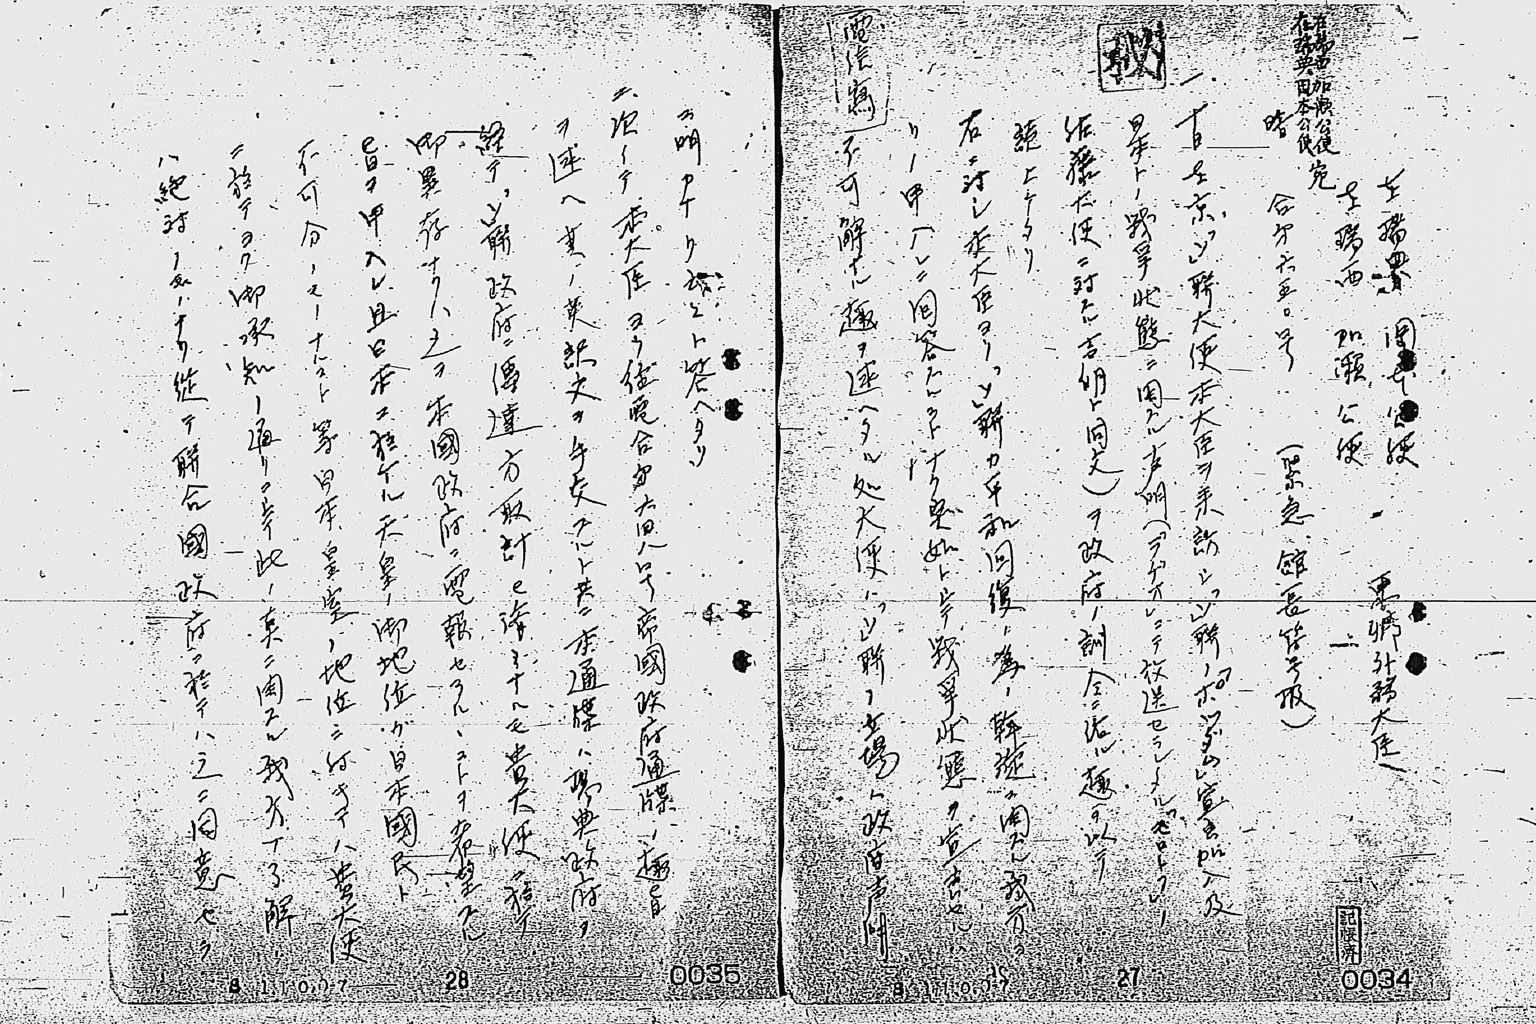 在瑞西加瀬公使
在瑞典岡本公使 宛
秘
在瑞典 岡本公使
在瑞西 加瀬公使
東郷外務大臣
暗 合第六五〇号 (緊急 館長符号扱)
一、十日在京「ソ」聯大使本大臣ヲ来訪シ「ソ」聯ノポツダム宣言加入及
日本トノ戦争状態ニ関スル声明(ラヂオニテ放送セラレタル「モロトフ」ノ
佐藤大使ニ対スル言明ト同文)ヲ政府ノ訓令ニ依ル趣ヲ以テ
読上ゲタリ
右ニ対シ本大臣ヨリ「ソ」聯カ平和回復ノ為ノ幹旋ニ関スル我方ヨ
リノ申入レニ回答スルコトナク突如トシテ戦争状態ヲ宣言セルハ
不可解ナル趣ヲ述ヘタル処大使ハ「ソ」聯ノ立場ハ政府声明
電信寫
記録済
0034
27
ニ明カナリ
ト答ヘタリ
二、次イテ本大臣ヨリ往電合第六四八号帝国政府通牒ノ趣旨
ヲ述ヘ其ノ英訳文ヲ手交スルト共ニ本通牒ハ瑞典政府ヲ
経テ「ソ」聯政府ニ傳達方取計ヒ済ミナルモ貴大使ニ於テ
御異存ナクハ之ヲ本國政府ニ電報セラルルコトヲ希望スル
旨ヲ申入レ且日本ニ於ケル天皇ノ御地位ガ日本國民ト
不可分ノモノナルコト等日本皇室ノ地位ニ付キテハ貴大使
ニ於テヨク御承知ノ通リニシテ此ノ点ニ関スル我方ノ了解
ハ絶対ノモノナリ従テ聯合國政府ニ於テハ之ニ同意セラ
0035
28